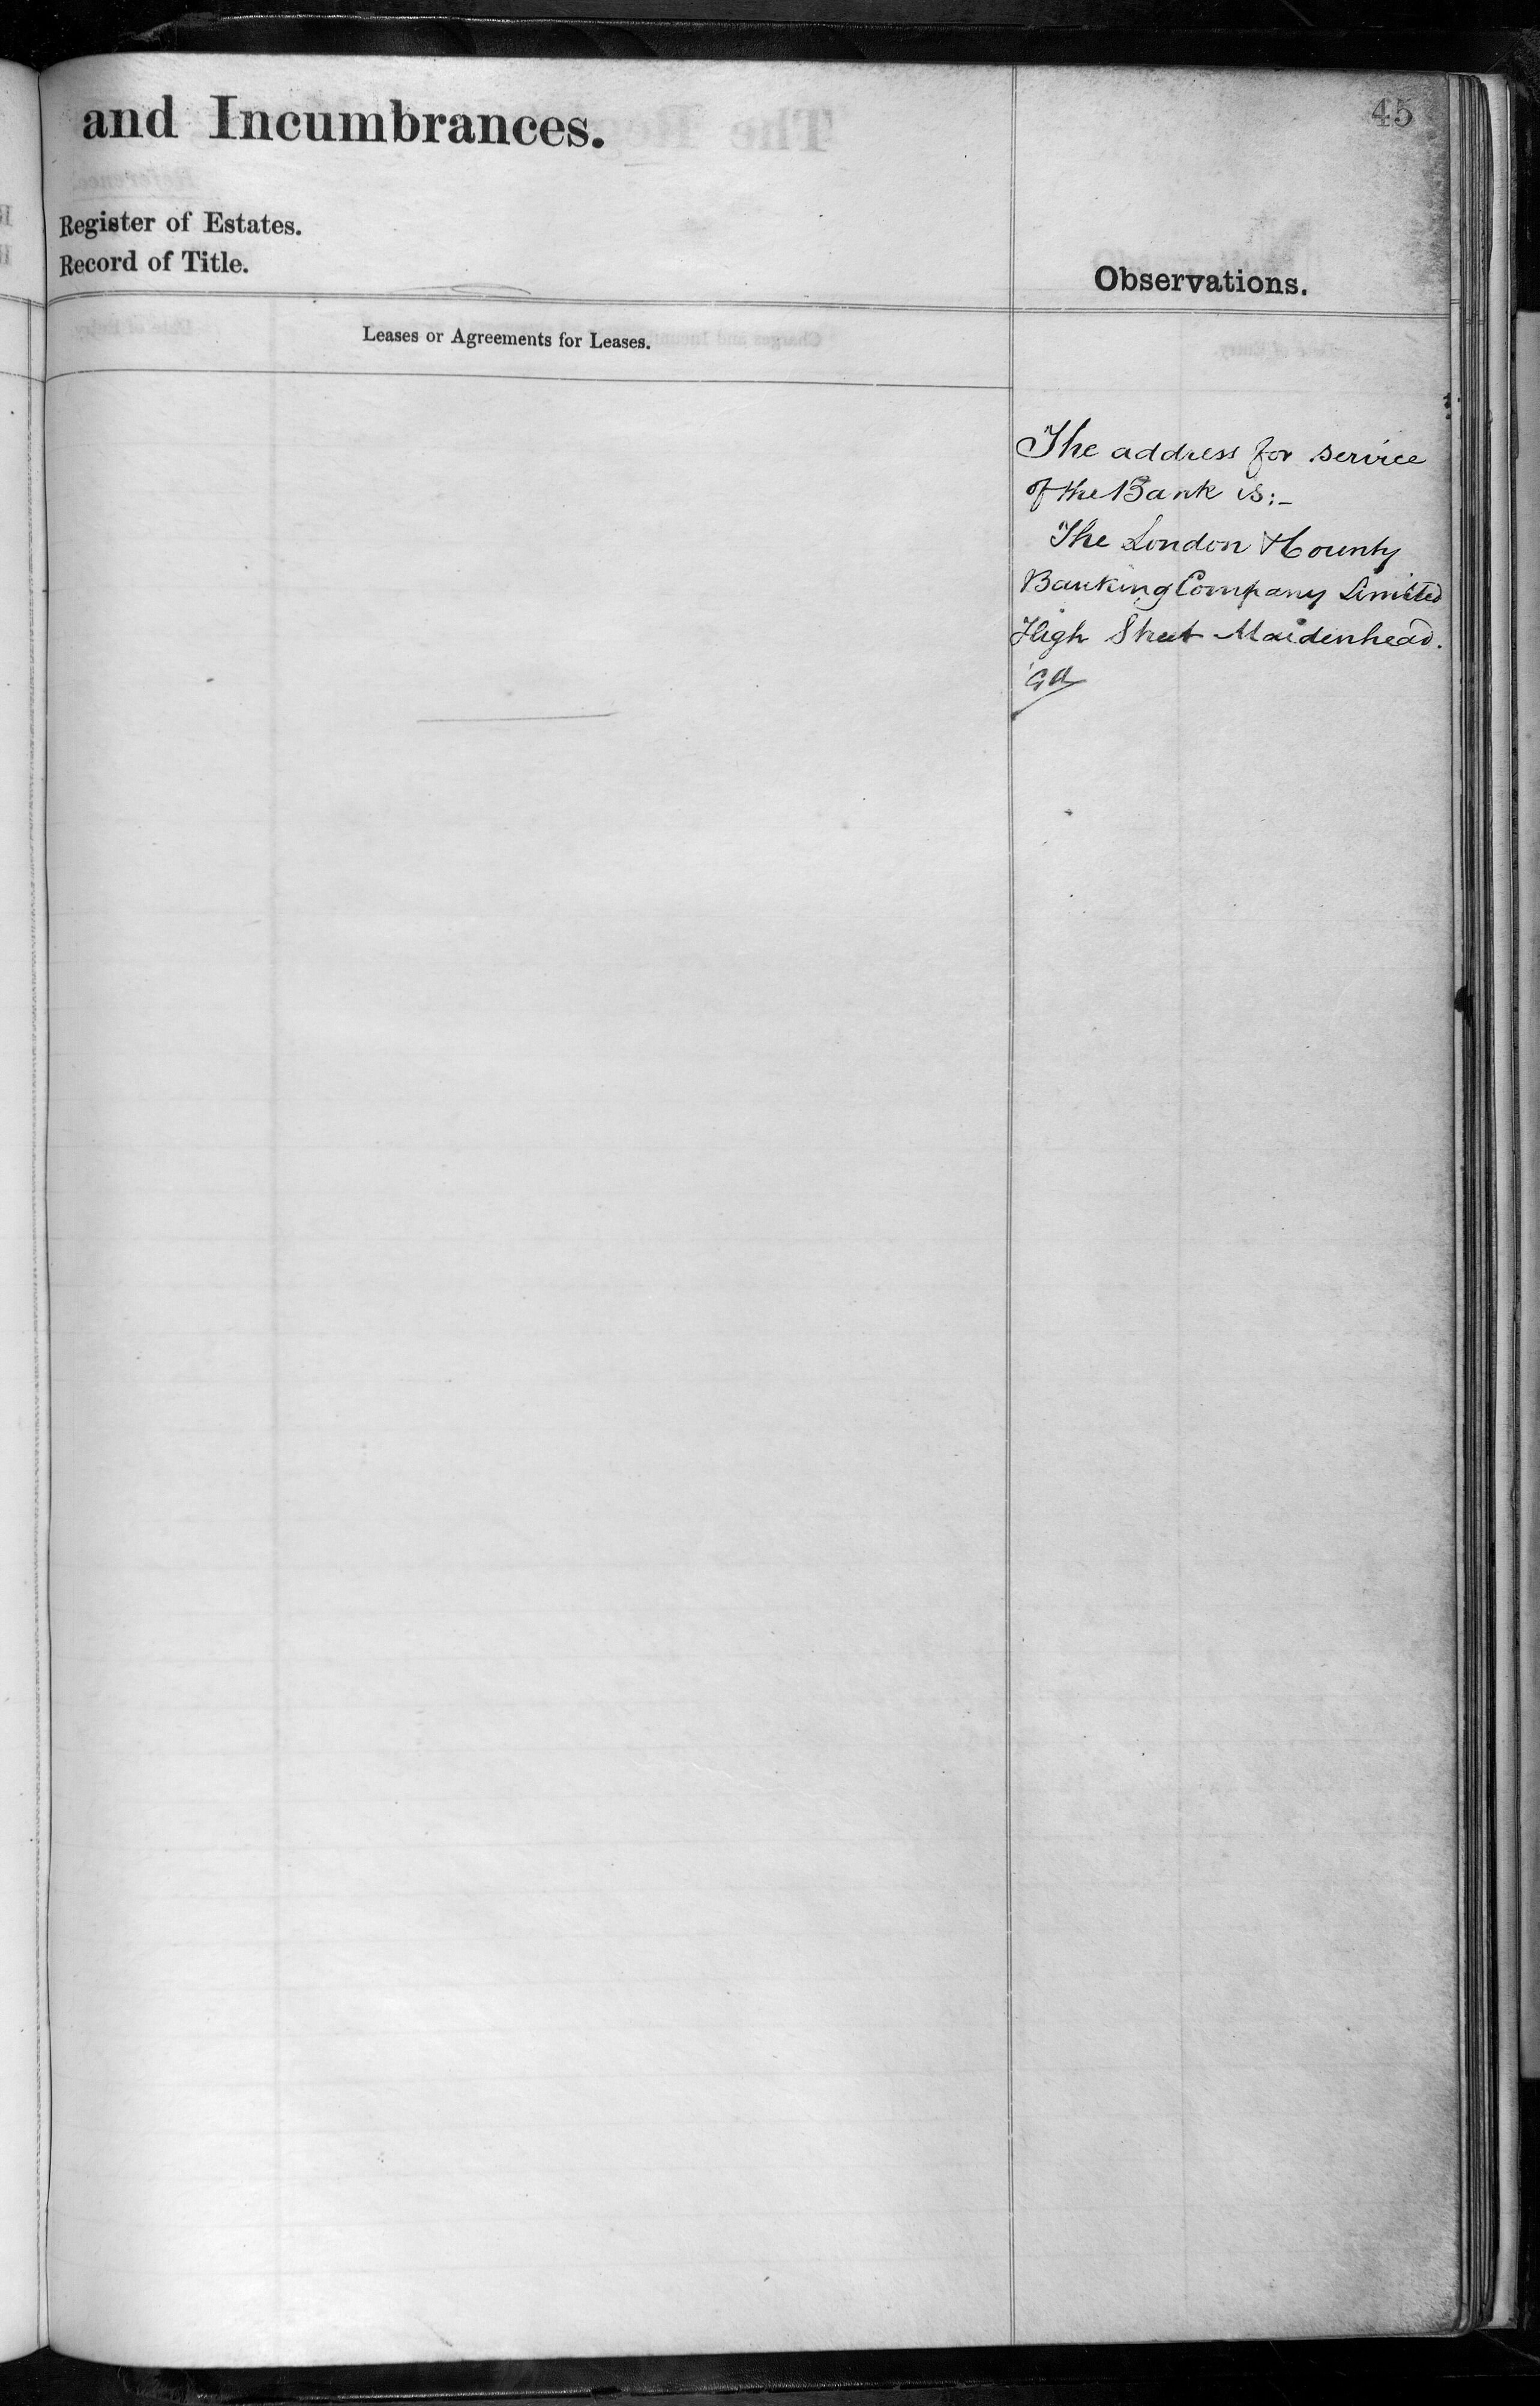 and Incumbrances.
45
Register of Estates.
Record of Title.
Observations.
Leases or Agreements for Leases.
The address for service
of the Bank is:-
The London & County
Banking Company Limited
High Street Maidenhead.